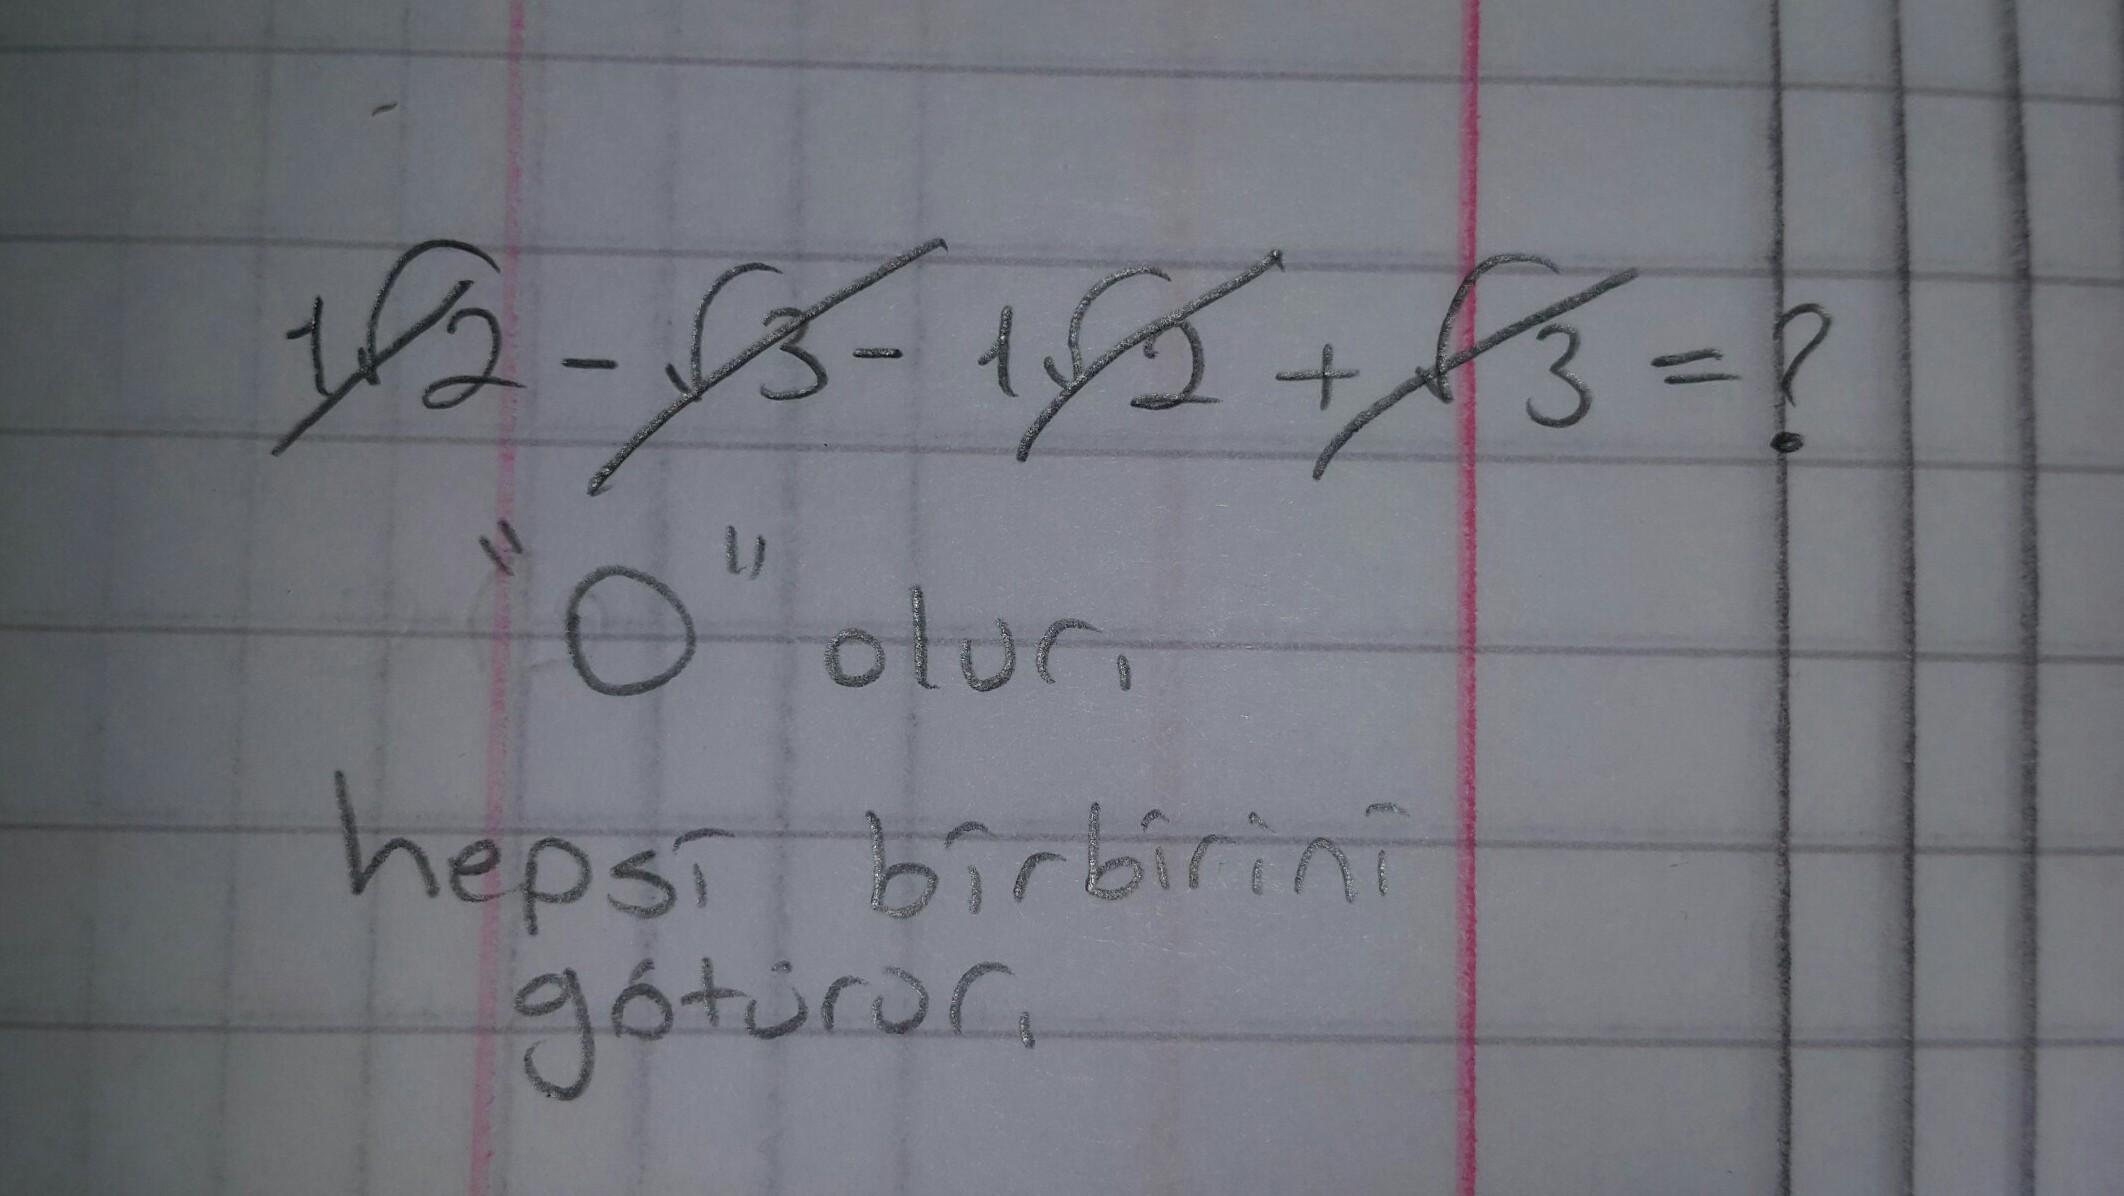 1√2 - √3 - 1√2 + √3 = ?
"0" olur.
hepsi birbirini
götürür.